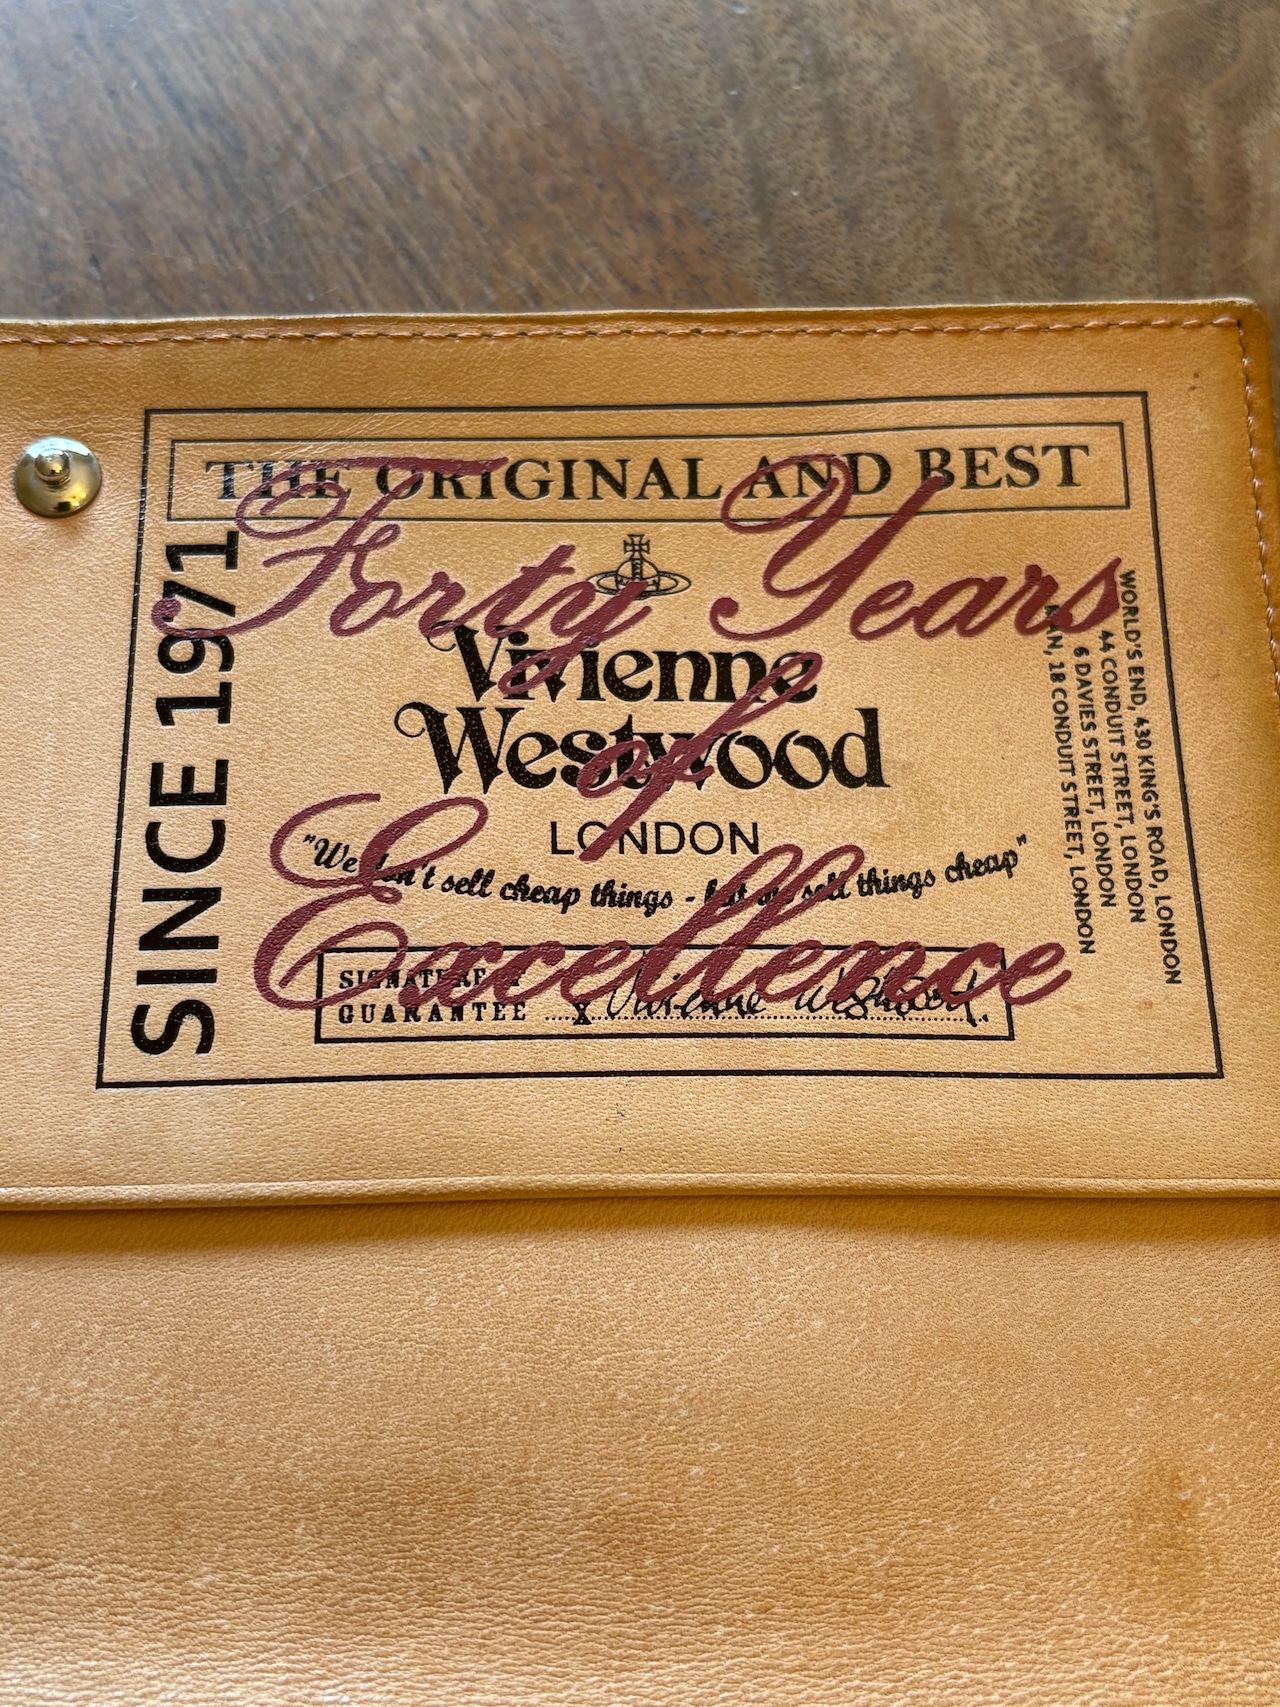 THE ORIGINAL AND BEST
SINCE 1971
Forty Years
of
Excellence
Vivienne
Westwood
LONDON
"We don't sell cheap things - but we sell things cheap"
SIGNATURE OF
GUARANTEE
X Vivienne Westwood
WORLD'S END, 430 KING'S ROAD, LONDON
44 CONDUIT STREET, LONDON
6 DAVIES STREET, LONDON
MAN, 18 CONDUIT STREET, LONDON